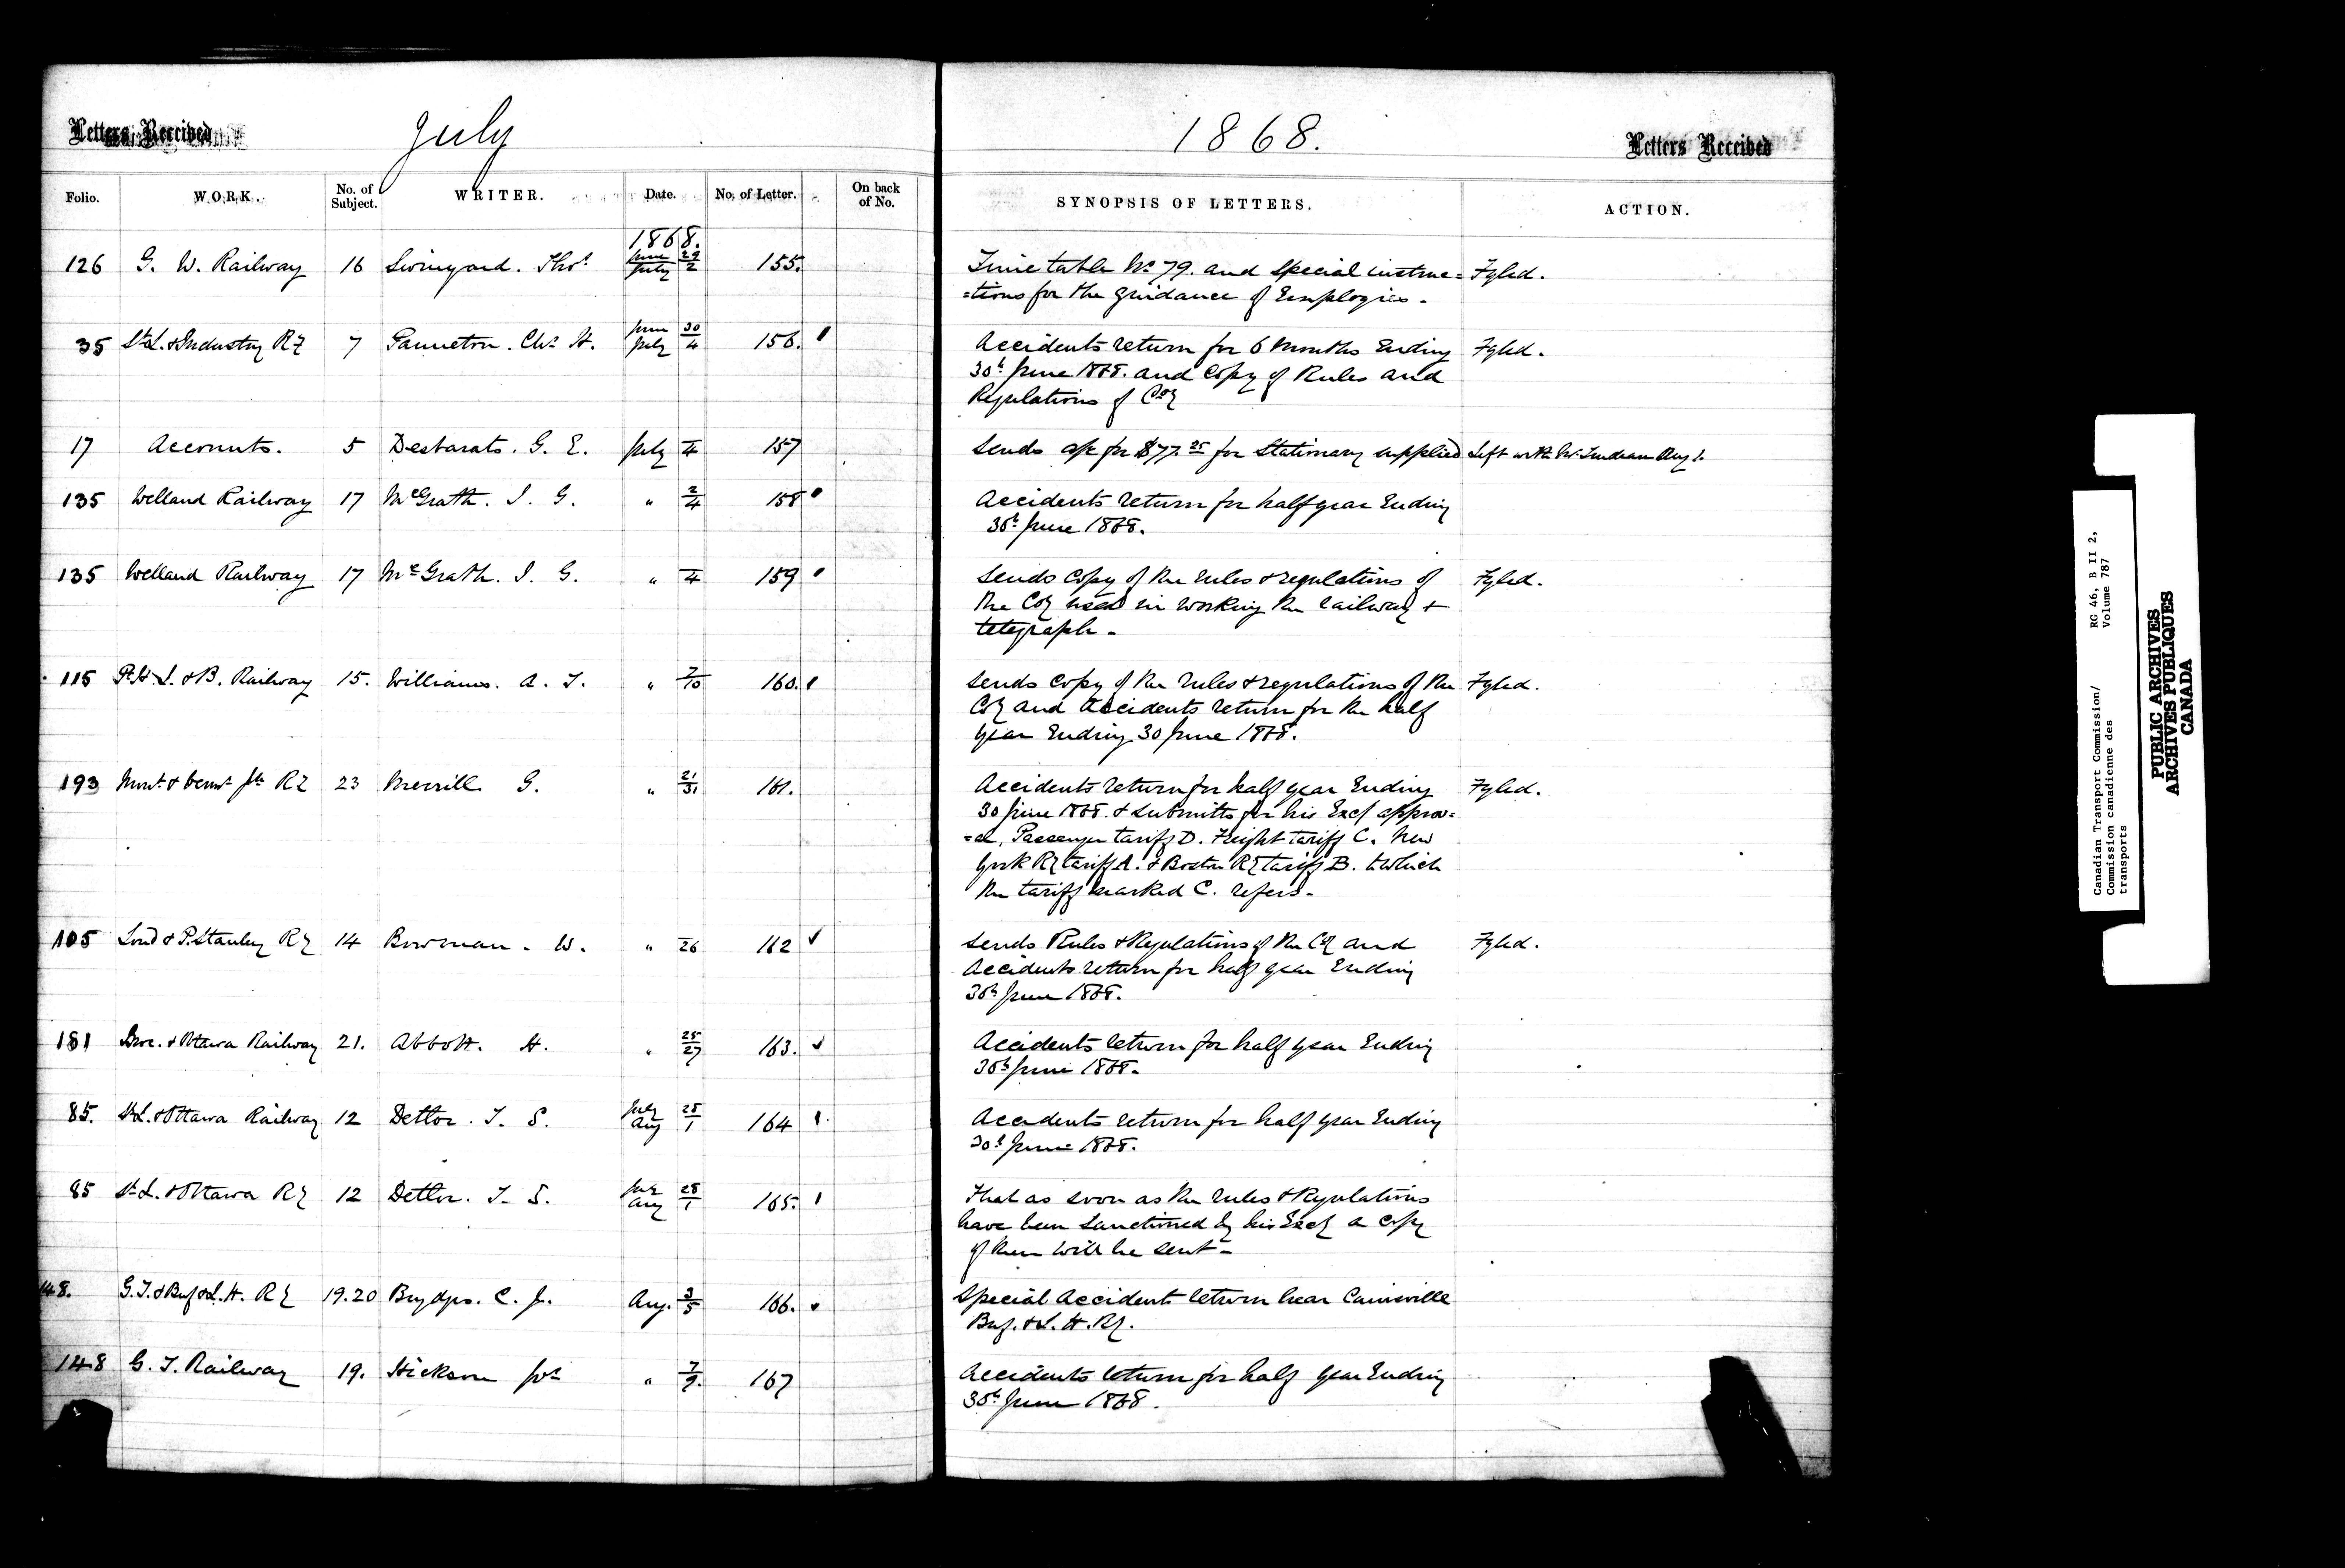 Letters Received July 1868. Letters Received
Folio. WORK. No. of Subject. WRITER. Date. No. of Letter. On back of No. SYNOPSIS OF LETTERS. ACTION.
1868.
126 G. W. Railway 16 Swinyard. Thos. June 29 / July 2 155. Time table No. 79. and special instruc= Fyled.
=tions for the guidance of Employies -
35 St. L. & Industry Ry 7 Panneton. Chs. H. June 30 / July 4 156. Accidents return for 6 Months Ending Fyled.
30th June 1868. and Copy of Rules and
Regulations of Coy
17 Accounts. 5 Desbarats. G. E. July 4 157 Sends a/c for $77.25 for Stationary supplied Left with Mr. Trudeau Aug 1.
135 Welland Railway 17 McGrath. I. G. " 2/4 158 Accidents return for half year Ending
30th June 1868.
135 Welland Railway 17 McGrath. I. G. " 4 159 Sends Copy of the rules & regulations of Fyled.
the Coy used in working the railway &
telegraph -
115 P.H.L. & B. Railway 15. Williams. A. T. " 7/10 160. Sends Copy of the rules & regulations of the Fyled.
Coy and Accidents return for the half
year Ending 30 June 1868.
193 Mont. & Vermt. Jn Ry 23 Merrill G. " 21/31 161. Accidents return for half year Ending Fyled.
30 June 1868. & submitts for his Excy approv=
=al, Passenger tariff D. Freight tariff C. New
York Ry tariff A. & Boston Ry tariff B. to which
the tariff marked C. refers -
105 Lond & P. Stanley Ry 14 Bowman. W. " 26 162 Sends Rules & Regulations of the Coy and Fyled.
Accidents return for half year Ending
30th June 1868.
181 Broc. & Ottawa Railway 21. Abbott. H. " 25/27 163. Accidents return for half year Ending
30th June 1868.
85. St. L. & Ottawa Railway 12 Detlor. T. S. July 28 / Aug 1 164 Accidents return for half year Ending
30th June 1868.
85 St. L. & Ottawa Ry 12 Detlor. T. S. July 28 / Aug 1 165. That as soon as the rules & Regulations
have been sanctioned by his Excy a Copy
of them will be sent -
148. G.T. & Buf & L.H. Ry 19.20 Brydges. C. J. Aug. 3/5 166. Special Accident return near Cainsville
Buf. & L. H. Ry.
148 G. T. Railway 19. Hickson Jos " 7/9. 167 Accidents return for half year Ending
30th June 1868.
Canadian Transport Commission/ RG 46, B II 2,
Commission canadienne des Volume 787
transports
PUBLIC ARCHIVES
ARCHIVES PUBLIQUES
CANADA